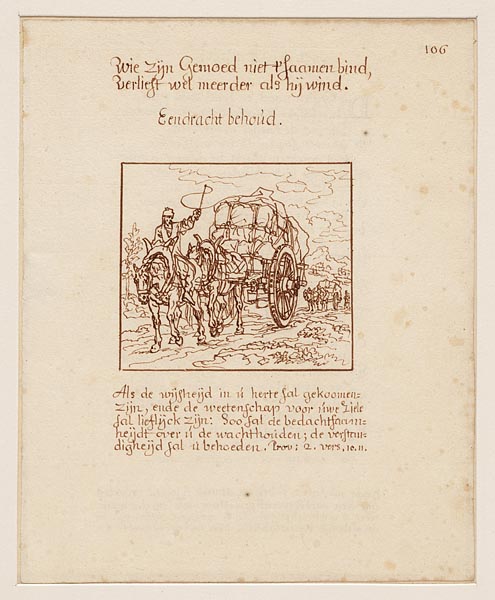 106
Wie zijn Gemoed niet t'saamen bind,
verliest wel meerder als hij wind.
Eendracht behoud.
Als de wijsheijd in u herte sal gekoomen-
zijn, ende de weetenschap voor uwe ziele
sal lieflijck zijn: Soo sal de bedachtsaam-
heijdt over u de wachthouden; de verstan-
digheijd sal u behoeden. Prov: 2. vers, 10.11.